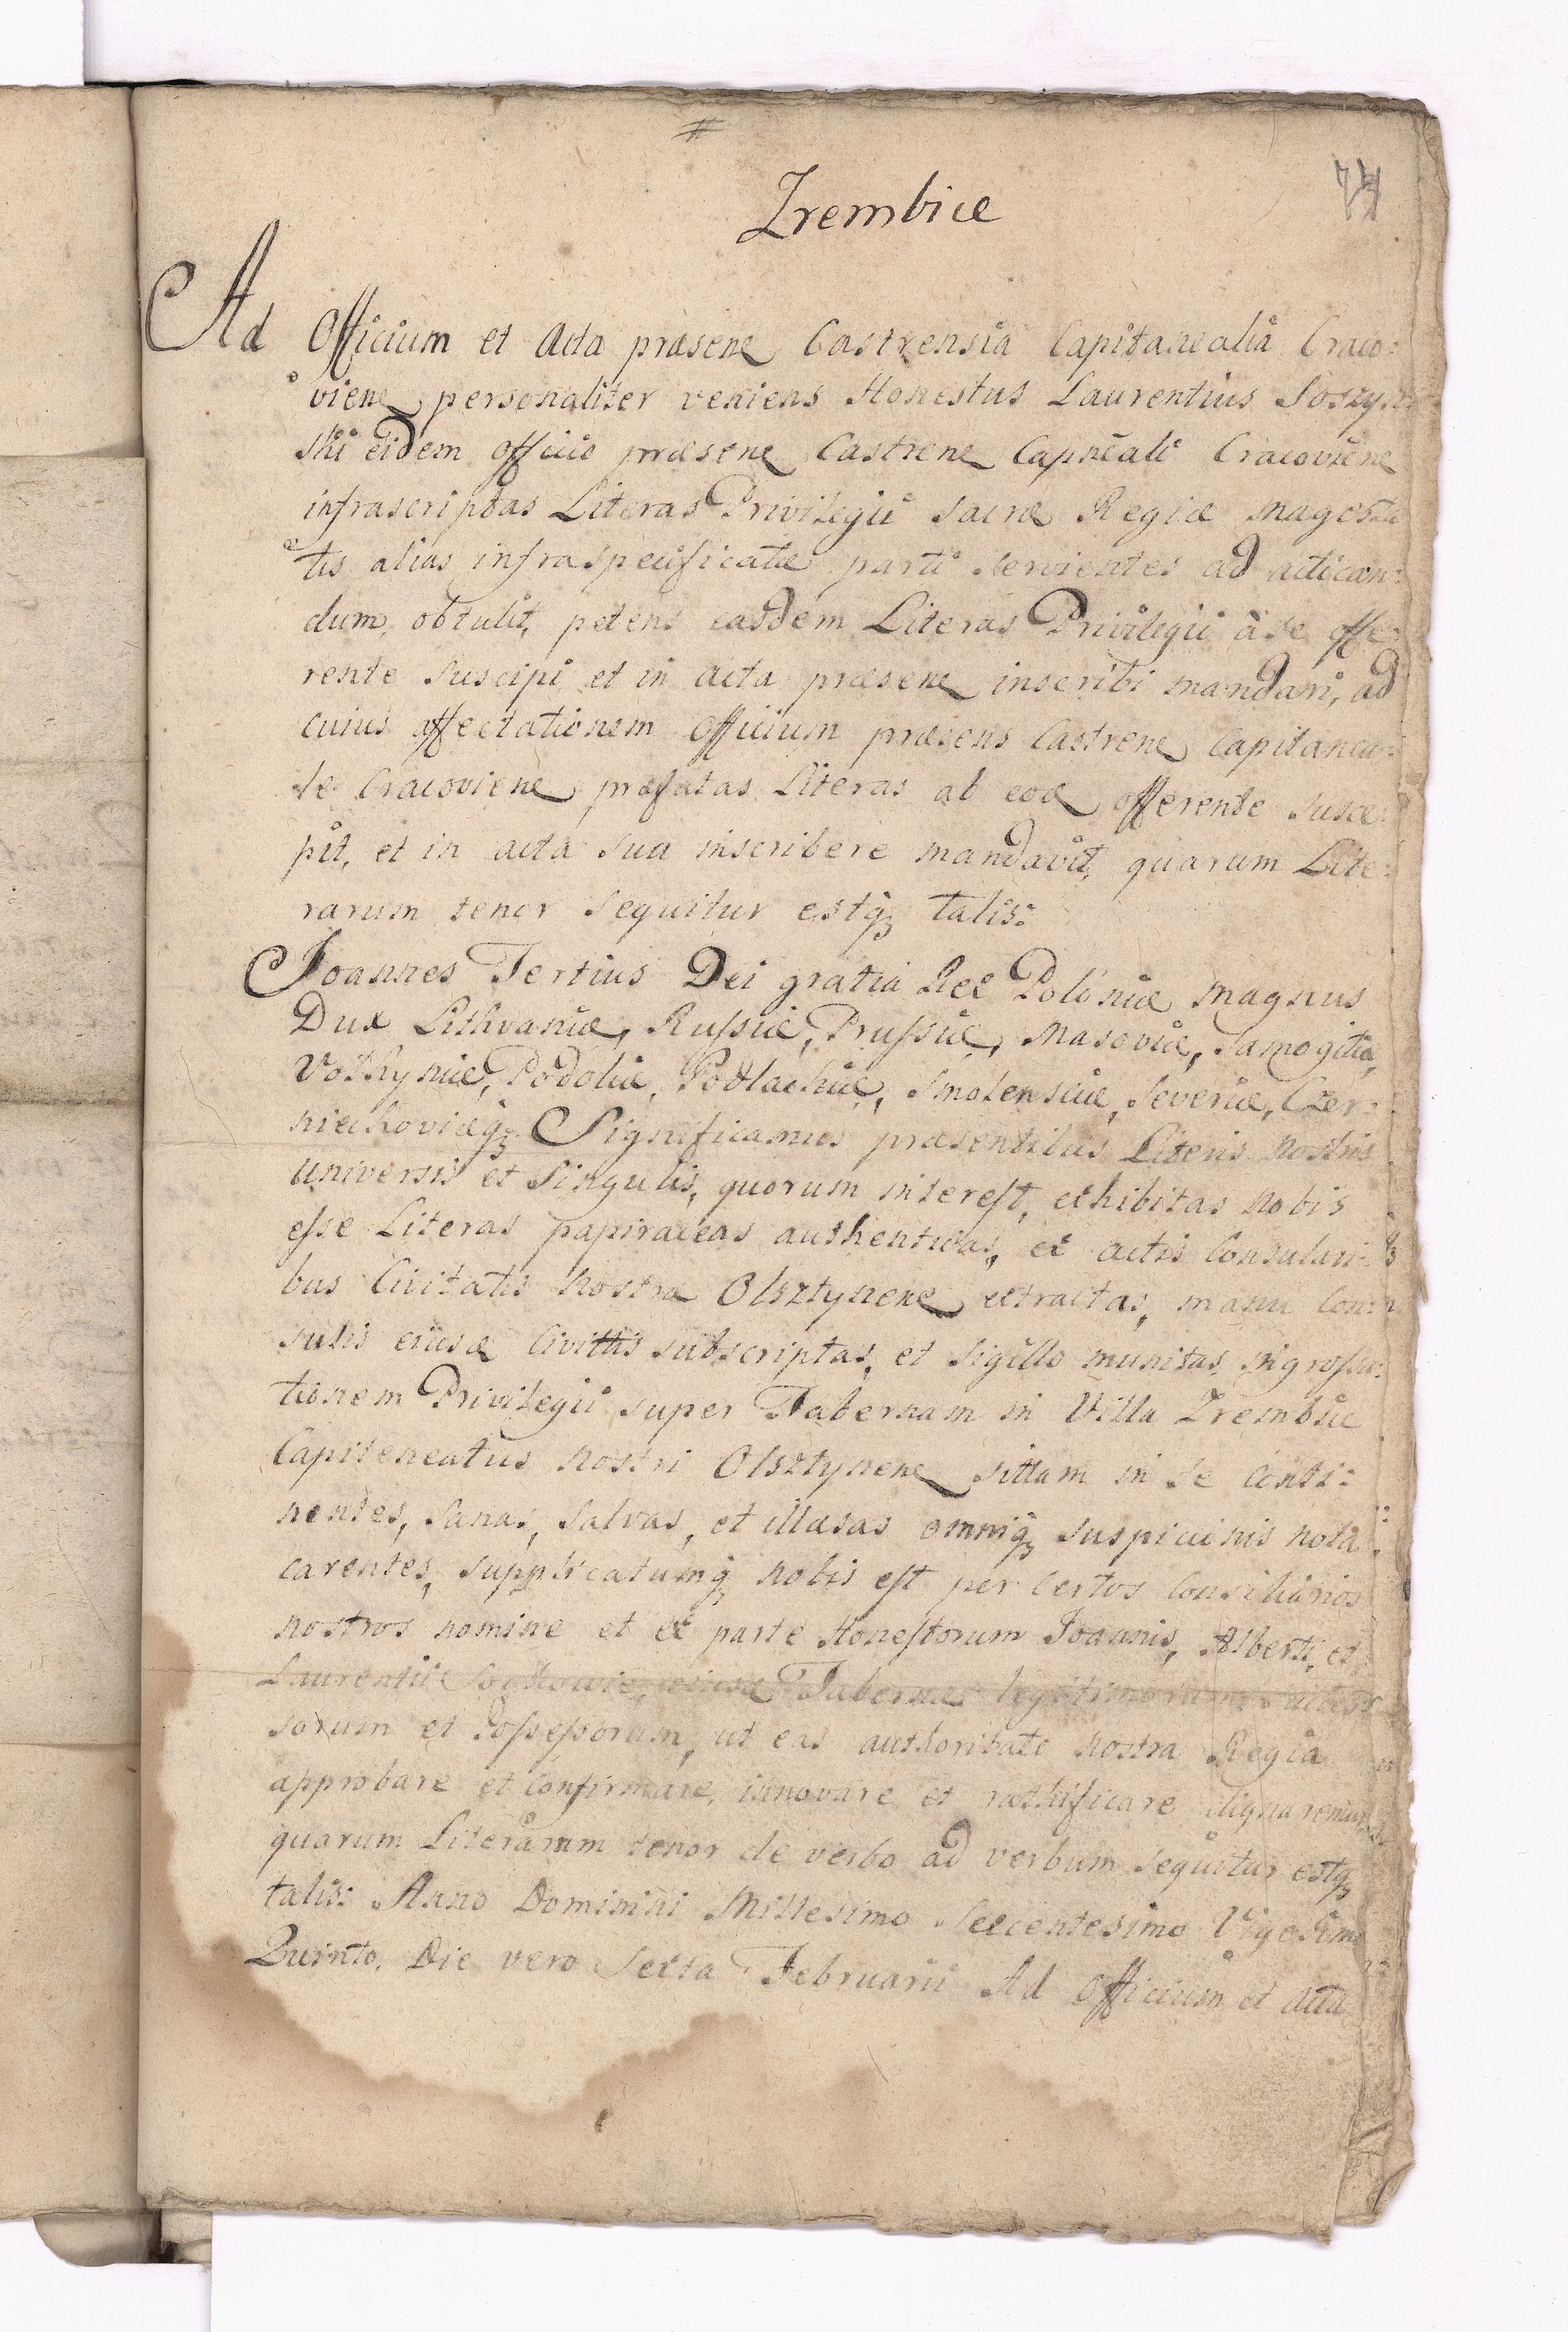 #
Zrembice
74
Ad Officium et Acta præsene Castrensia Capitanealia Craco:
viene personaliter veniens Honestus Laurentius Soszyn:
ski eidem officio præsene Castrene Capneali Cracoviene
infrascriptas Literas Privilegii Sacræ Regiæ Magesta
tis alias infraspecificatæ parti servientes ad acticam:
dum, obtulit, petens easdem Literas Privilegii à se offe:
rente suscipi et in acta præsene inscribi mandari, ad
cuius affectationem officium præsens Castrene Capitanea:
le Cracoviene præfatas Literas ab eoď offerente susce:
pit, et in acta sua inscribere mandavit, quarum Lite:
rarum tenor sequitur estqȝ talis:
Joannes Tertius Dei gratia Rex Poloniæ Magnus
Dux Lithvaniæ, Russiæ, Prussiæ, Masoviæ, Samogitiæ,
Volhyniæ, Podoliæ, Podlachiæ, Smolensciæ, Severiæ, Czer:
niechoviæqȝ Significamus præsentibus Literis nostris
universis et singulis, quorum interest, exhibitas nobis
esse Literas papiraceas authenticas, ex actis Consulari:
bus Civitatis nostræ Olsztynene extractas, manu Con:
sulis eiusď Civittis subscriptas, et sigillo munitas, ingrossa:
tionem Privilegii super Tabernam in Villa Zrembice
Capiteneatus nostri Olsztynene sittam in se conti:
nentes, sanas, salvas, et illæsas omniqȝ suspicionis nota
carentes, supplicatumqȝ nobis est per certos Consiliarios
nostros nomine et ex parte Honestorum Joannis, Alberti, et
Laurentii eiusď Tabernæ legitimorum succes
sorum et Possessorum, ut eas authoritate nostra Regia
approbare et confirmare, innovare et rathificare dignaremur,
quarum Literarum tenor de verbo ad verbum sequitur estqȝ
talis: Anno Dominini Millesimo Sexcentesimo Vigesimo
Quinto, Die vero Sexta Februarii Ad Officium et acta